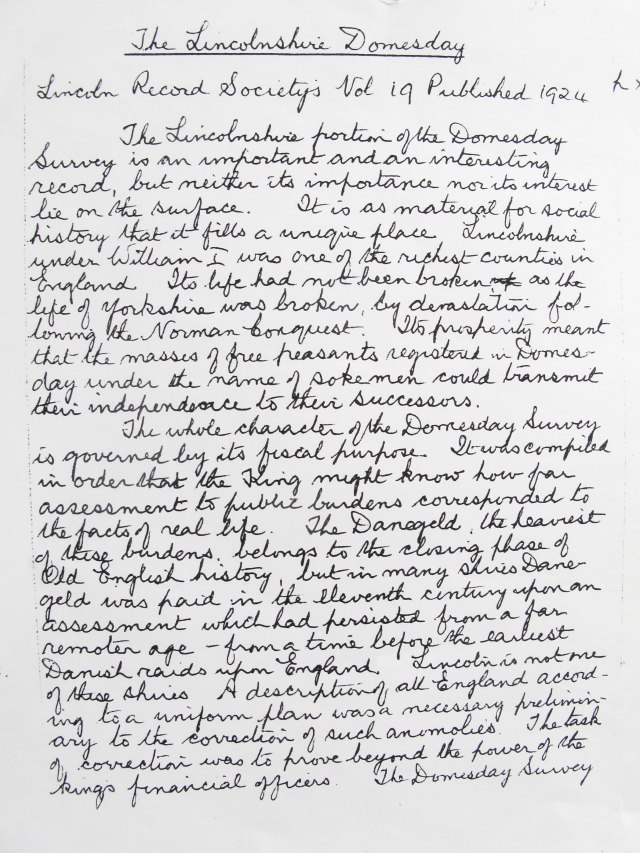 The Lincolnshire Domesday
Lincoln Record Society's Vol 19 Published 1924
The Lincolnshire portion of the Domesday
Survey is an important and an interesting
record, but neither its importance nor its interest
lie on the surface. It is as material for social
history that it fills a unique place. Lincolnshire
under William I was one of the richest counties in
England. Its life had not been broken as the
life of Yorkshire was broken, by devastation fol-
lowing the Norman Conquest. Its prosperity meant
that the masses of free peasants registered in Domes-
day under the name of sokemen could transmit
their independence to their successors.
The whole character of the Domesday Survey
is governed by its fiscal purpose. It was compiled
in order that the King might know how far
assessment to public burdens corresponded to
the facts of real life. The Danegeld, the heaviest
of these burdens, belongs to the closing phase of
Old English history, but in many shires Dane-
geld was paid in the eleventh century upon an
assessment which had persisted from a far
remoter age - from a time before the earliest
Danish raids upon England. Lincoln is not one
of these shires A description of all England accord-
ing to a uniform plan was a necessary prelimin-
ary to the correction of such anomolies. The task
of correction was to prove beyond the power of the
kings financial officers. The Domesday Survey